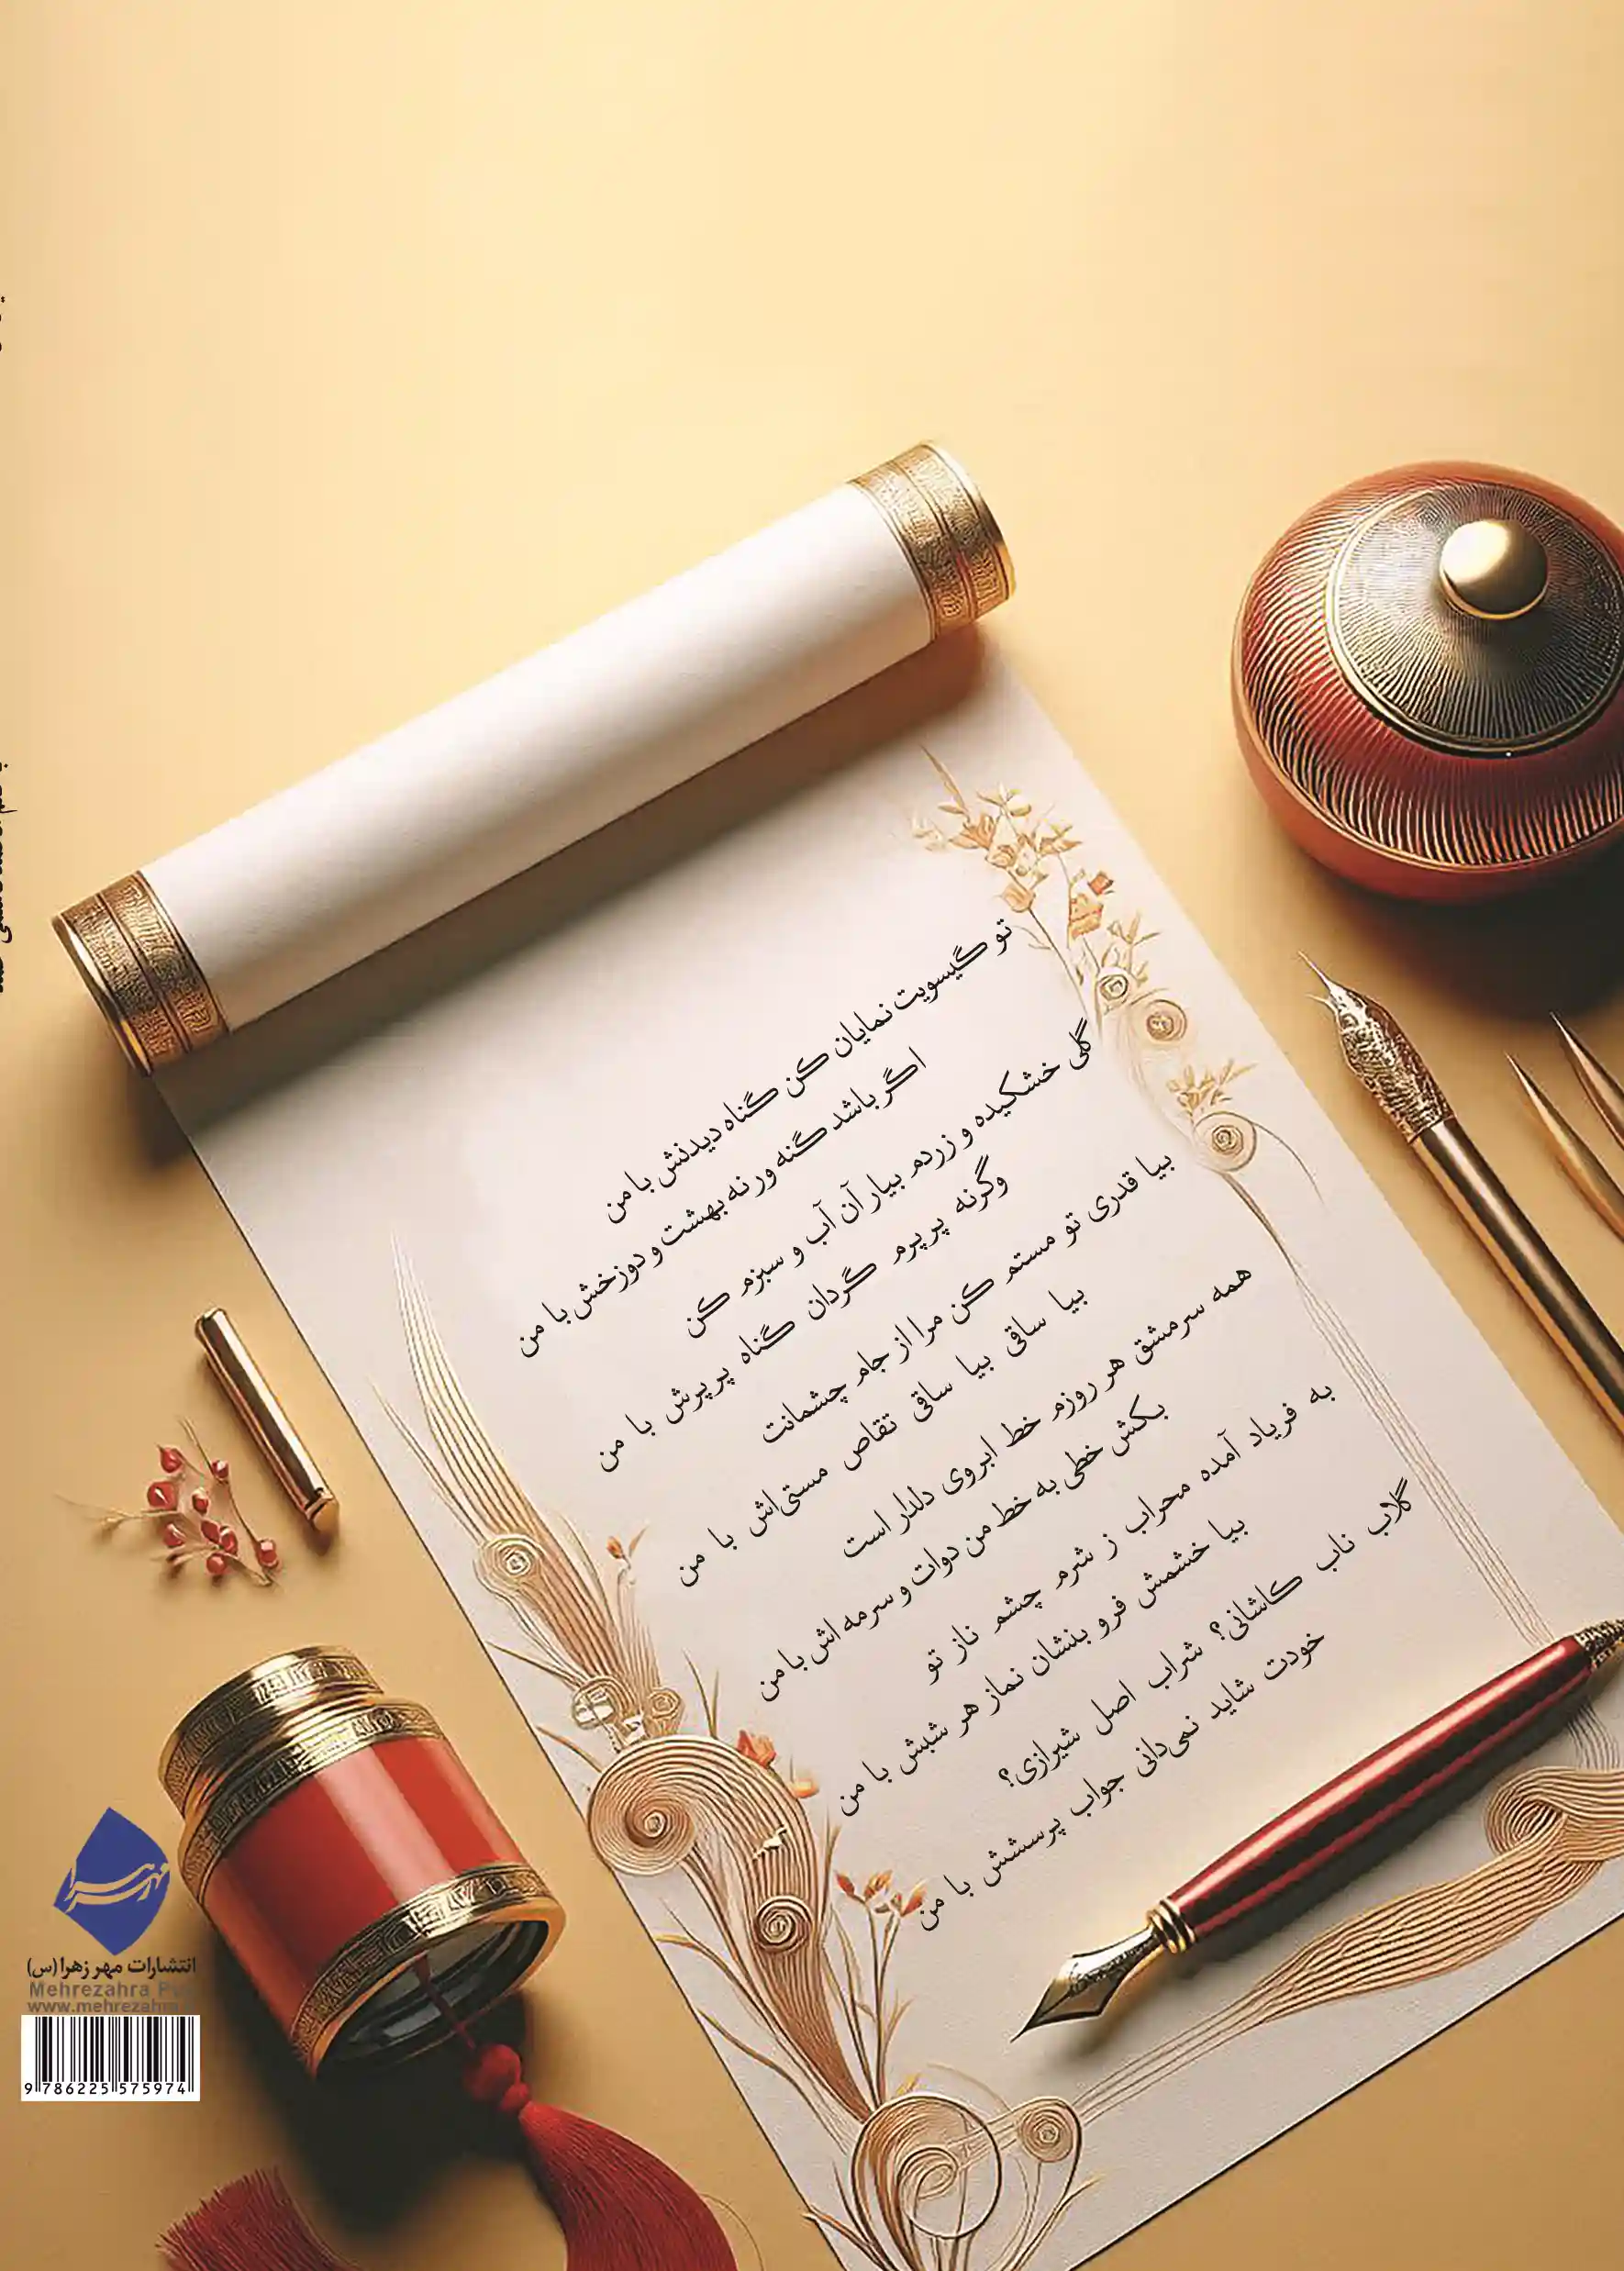 تو گیسویت نمایان کن گناه دیدنش با من
اگر باشد گنه ور نه بهشت و دوزخش با من
گلی خشکیده و زردم بیار آن آب و سبزم کن
وگرنه پرپرم گردان گناه پرپرش با من
بیا قدری تو مستم کن مرا از جام چشمانت
بیا ساقی بیا ساقی تقاص مستی‌اش با من
همه سرمشق هر روزم خط ابروی دلدار است
بکش خطی به خط من دوات و سرمه اش با من
به فریاد آمده محراب ز شرم چشم ناز تو
بیا خشمش فرو بنشان نماز هر شبش با من
گلاب ناب کاشانی؟ شراب اصل شیرازی؟
خودت شاید نمی‌دانی جواب پرسشش با من
مهر زهرا
انتشارات مهر زهرا (س)
Mehrezahra
www.mehrezahra
9 786225 575974